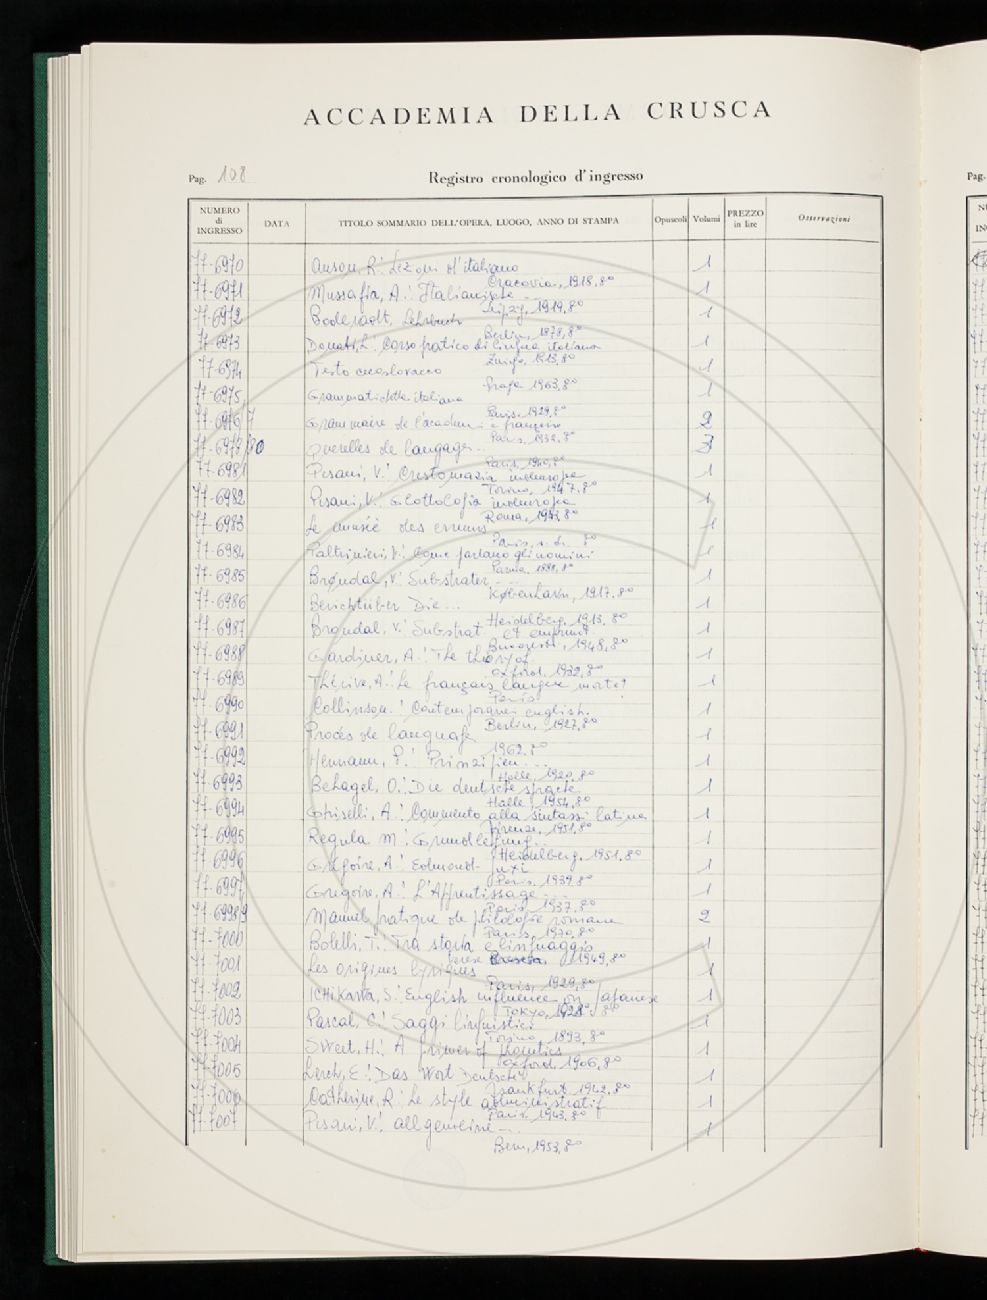 ACCADEMIA DELLA CRUSCA
Pag. 108
Registro cronologico d'ingresso
Pag.
NUMERO di INGRESSO DATA TITOLO SOMMARIO DELL'OPERA, LUOGO, ANNO DI STAMPA Opuscoli Volumi PREZZO in lire Osservazioni
77-6970 R.: Lezioni d'italiano 1
Cracovia, 1918, 8°
77-6971 Mussafia, A.: Italianische 1
Leipzig, 1919, 8°
77-6972 Lehrbuch 1
Berlin, 1878, 8°
77-6973 Donati, L.: Corso pratico di lingua italiana 1
Zurigo, 1913, 8°
77-6974 Testo cecoslovacco 1
Praga 1963, 8°
77-6975 Grammatichetta italiana 1
Paris, 1929, 8°
77-6976/7 Grammaire de l'académie française 2
Paris, 1932, 8°
77-6978/80 Querelles de langage... 3
Paris, 1940, 8°
77-6981 Pisani, V.: Crestomazia indeuropea 1
Torino, 1947, 8°
77-6982 Pisani, V.: Glottologia indeuropea 1
Roma, 1943, 8°
77-6983 Le musée des erreurs 1
Paris, s.d. 8°
77-6984 Paltrinieri, V.: Come parlano gli uomini 1
Parma, 8°
77-6985 Brøndal, V.: Substrater... 1
København, 1917, 8°
77-6986 Bericht über Die... 1
Heidelberg, 1913, 8°
77-6987 Brøndal, V.: Substrat et emprunt 1
Bucuresti, 1948, 8°
77-6988 Gardiner, A.: The theory of 1
Oxford, 1932, 8°
77-6989 Thérive, A.: Le français langue morte? 1
Paris
77-6990 Collinson: Contemporary english. 1
Berlin, 1927, 8°
77-6991 Procès de langage 1
1962, 8°
77-6992 Hermann, P.: Prinzipien... 1
Halle, 1920, 8°
77-6993 Behagel, O.: Die deutsche sprache 1
Halle, 1954, 8°
77-6994 Ghiselli, A.: Commento alla sintassi latina 1
Firenze, 1951, 8°
77-6995 Regula M.: Grundlegung... 1
Heidelberg, 1951, 8°
77-6996 Grégoire, A.: Edmond- 1
Paris, 1939, 8°
77-6997 Gregoire, A.: L'Apprentissage... 1
Paris, 1937, 8°
77-6998/9 Manuel pratique de philologie romane 2
Paris, 1970, 8°
77-7000 Bolelli, T.: Tra storia e linguaggio 1
1949, 8°
77-7001 Les origines lyriques 1
Paris, 1929, 8°
77-7002 Ichikawa, S.: English influence on Japanese 1
Tokyo, 1928, 8°
77-7003 Pascal, C.: Saggi linguistici 1
Torino 1893, 8°
77-7004 Sweet, H.: A primer of phonetics 1
Oxford, 1906, 8°
77-7005 Lerch, E.: Das Wort Deutsch 1
Frankfurt, 1942, 8°
77-7006 Catherine, R.: Le style administratif 1
Paris, 1943, 8°
77-7007 Pisani, V.: allgemeine... 1
Bern, 1953, 8°